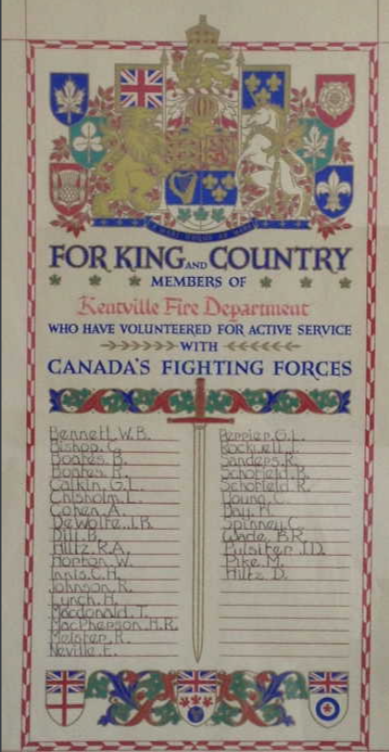 FOR KING AND COUNTRY
MEMBERS OF
Kentville Fire Department
WHO HAVE VOLUNTEERED FOR ACTIVE SERVICE
WITH
CANADA'S FIGHTING FORCES
Bennett, W.B.
Bishop, G.
Boates, B.
Boates, R.
Calkin, G.L.
Chisholm, L.
Cohen, A.
DeWolfe, J.B.
Dill, B.
Hiltz, R.A.
Horton, W.
Innis, C.H.
Johnson, K.
Lynch, H.
Macdonald, T.
MacPherson, H.R.
Meister, R.
Neville, E.
Perrier, G.L.
Rockwell, J.
Sanders, R.
Schofield, B.
Schofield, R.
Young, C.
Day, H.
Spinney, C.
Wade, B.R.
Pulsifer, J.D.
Pike, M.
Hiltz, D.